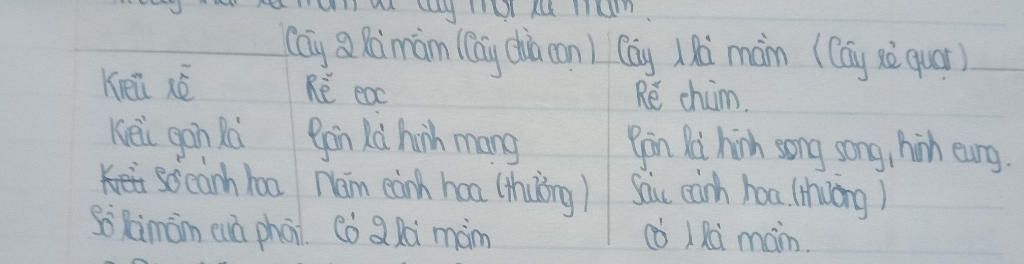 cây một lá mầm.
Cây 2 lá mầm (Cây dừa cạn) Cây 1 lá mầm (Cây rẻ quạt)
Kiểu rễ Rễ cọc Rễ chùm.
Kiểu gân lá Gân lá hình mạng Gân lá hình song song, hình cung.
Kiểu Số cánh hoa Năm cánh hoa (thường) Sáu cánh hoa. (thường)
Số lá mầm của phôi. Có 2 lá mầm Có 1 lá mầm.